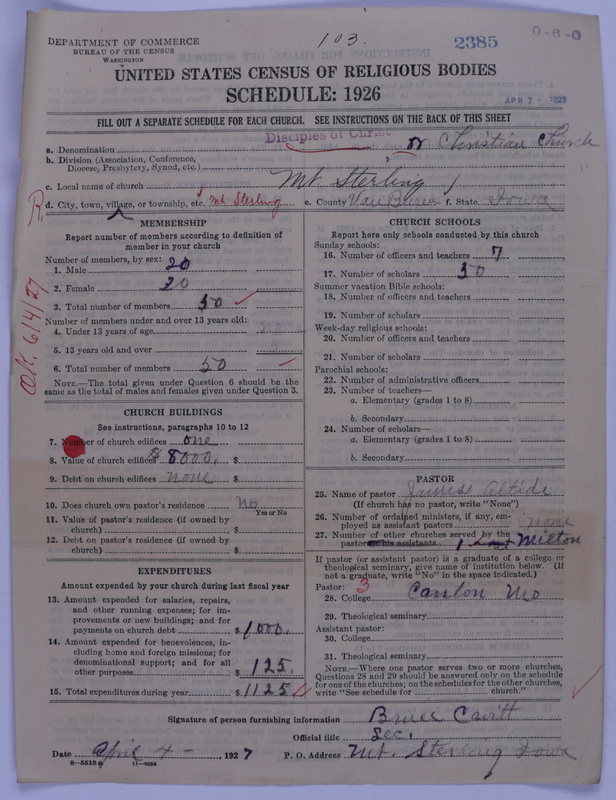 DEPARTMENT OF COMMERCE
BUREAU OF THE CENSUS
WASHINGTON
103.
2385
0-6-0
UNITED STATES CENSUS OF RELIGIOUS BODIES
SCHEDULE: 1926
APR 7 - 1927
FILL OUT A SEPARATE SCHEDULE FOR EACH CHURCH. SEE INSTRUCTIONS ON THE BACK OF THIS SHEET
Disciples of Christ
a. Denomination or Christian Church
b. Division (Association, Conference,
Diocese, Presbytery, Synod, etc.)
c. Local name of church Mt. Sterling
d. City, town, village, or township, etc. Mt. Sterling e. County Van Buren f. State Iowa
R.
O.K. 6/4/27
MEMBERSHIP
Report number of members according to definition of
member in your church
Number of members, by sex:
1. Male 20
2. Female 30
3. Total number of members 50
Number of members under and over 13 years old:
4. Under 13 years of age
5. 13 years old and over
6. Total number of members 50
NOTE.—The total given under Question 6 should be the
same as the total of males and females given under Question 3.
CHURCH BUILDINGS
See instructions, paragraphs 10 to 12
7. Number of church edifices one
8. Value of church edifices $ 8000. $
9. Debt on church edifices none $
10. Does church own pastor's residence No
Yes or No
11. Value of pastor's residence (if owned by
church) $
12. Debt on pastor's residence (if owned by
church) $
EXPENDITURES
Amount expended by your church during last fiscal year
13. Amount expended for salaries, repairs,
and other running expenses; for im-
provements or new buildings; and for
payments on church debt $ 1000.
14. Amount expended for benevolences, in-
cluding home and foreign missions; for
denominational support; and for all
other purposes $ 125
15. Total expenditures during year $ 1125
CHURCH SCHOOLS
Report here only schools conducted by this church
Sunday schools:
16. Number of officers and teachers 7
17. Number of scholars 50
Summer vacation Bible schools:
18. Number of officers and teachers
19. Number of scholars
Week-day religious schools:
20. Number of officers and teachers
21. Number of scholars
Parochial schools:
22. Number of administrative officers
23. Number of teachers—
a. Elementary (grades 1 to 8)
b. Secondary
24. Number of scholars—
a. Elementary (grades 1 to 8)
b. Secondary
PASTOR
25. Name of pastor James
(If church has no pastor, write "None")
26. Number of ordained ministers, if any, em-
ployed as assistant pastors none
27. Number of other churches served by the
pastor 1 Milton
If pastor (or assistant pastor) is a graduate of a college or
theological seminary, give name of institution below. (If
not a graduate, write "No" in the space indicated.)
Pastor: 3
28. College Canton Mo
29. Theological seminary
Assistant pastor:
30. College
31. Theological seminary
NOTE.—Where one pastor serves two or more churches,
Questions 28 and 29 should be answered only on the schedule
for one of the churches; on the schedules for the other churches,
write "See schedule for church."
Signature of person furnishing information Bruce Cavitt
Official title Sec.
Date April 4 - , 1927 P. O. Address Mt. Sterling Iowa
8—5510a 11—9084